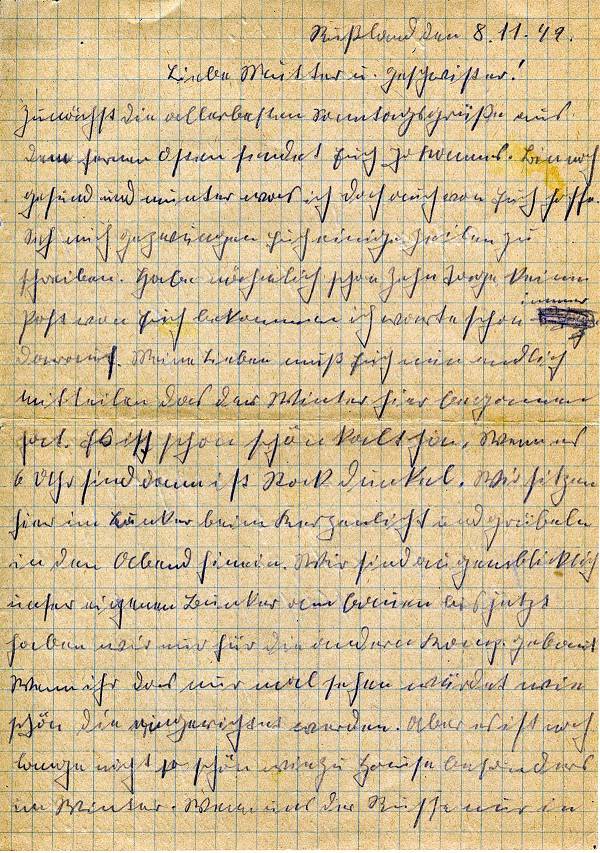 Rußland, den 8.11.42.
Liebe Mutter u. Geschwister!
Zunächst die allerbesten Sonntagsgrüße aus
dem fernen Osten sendet Euch Johannes. Bin noch
gesund und munter was ich doch auch von Euch hoffe.
mich gezwungen Euch einige Zeilen zu
schreiben. Habe nähmlich schon zehn Tage keinen
Post von Euch bekommen ich warte schon immer
darauf. Meine Lieben muß Euch nun endlich
mitteilen das der Winter hier begonnen
hat. Es ist schon schön kalt hin, Wenn es
6 Uhr sind dann ist Stock dunkel. Wir sitzen
hier im Bunker beim Kerzenlicht und grübeln
in den Abend hinein. Wir sind augenblicklich
unser eigenen Bunker am bauen bis jetzt
haben wir nur für die andern Komp. gebaut
Wenn ihr das nur mal sehen würdet wie
schön die eingerichtet werden. Aber es ist noch
lange nicht so schön wie zu Hause besonders
im Winter. Wenn uns der Russe nur in